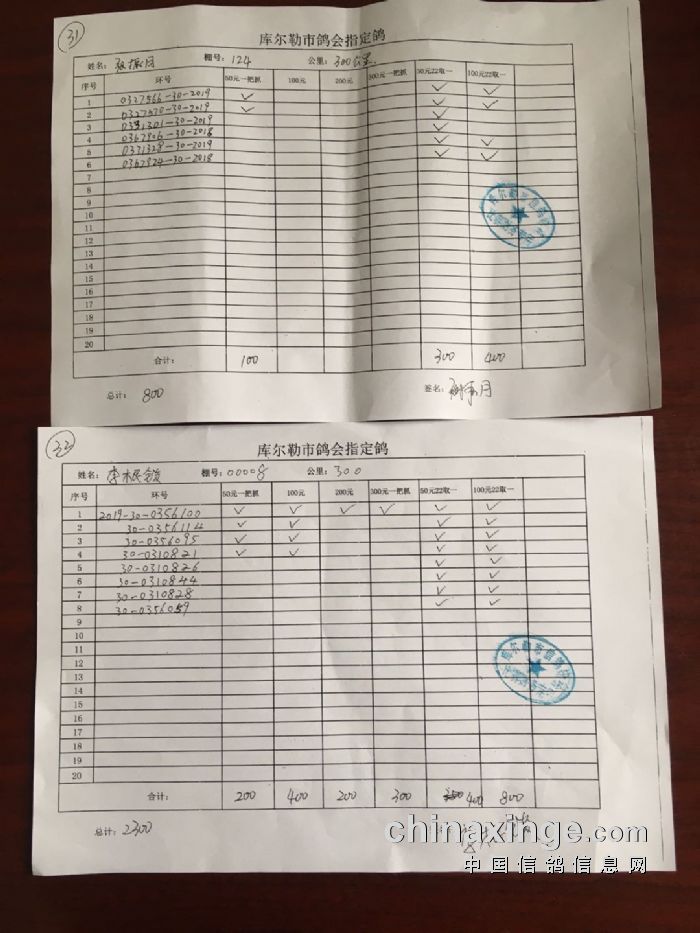 31
库尔勒市鸽会指定鸽
姓名: 张振月 棚号: 124 公里: 300公里.
序号 环号 50元一把抓 100元 200元 300元一把抓 50元22取一 100元22取一
1 0327566-30-2019 ✓ ✓ ✓
2 0327070-30-2019 ✓ ✓ ✓
3 0331301-30-2019 ✓
4 0367906-30-2018 ✓ ✓
5 0371328-30-2019 ✓ ✓
6 0367924-30-2018
7
8
9
10
11
12
13
14
15
16
17
18
19
20
合计: 100 300 400
总计: 800 签名: 月
33
库尔勒市鸽会指定鸽
姓名: 李 棚号: 00008 公里: 300
序号 环号 50元一把抓 100元 200元 300元一把抓 50元22取一 100元22取一
1 2019-30-0356100 ✓ ✓ ✓ ✓ ✓ ✓
2 30-0356114 ✓ ✓ ✓ ✓
3 30-0356095 ✓ ✓ ✓ ✓
4 30-0310821 ✓ ✓ ✓ ✓
5 30-0310826 ✓ ✓
6 30-0310844 ✓ ✓
7 30-0310828 ✓ ✓
8 30-0356059 ✓ ✓
9
10
11
12
13
14
15
16
17
18
19
20
合计: 200 400 200 300 400 800
总计: 2300
chinaxinge.com
中国信鸽信息网